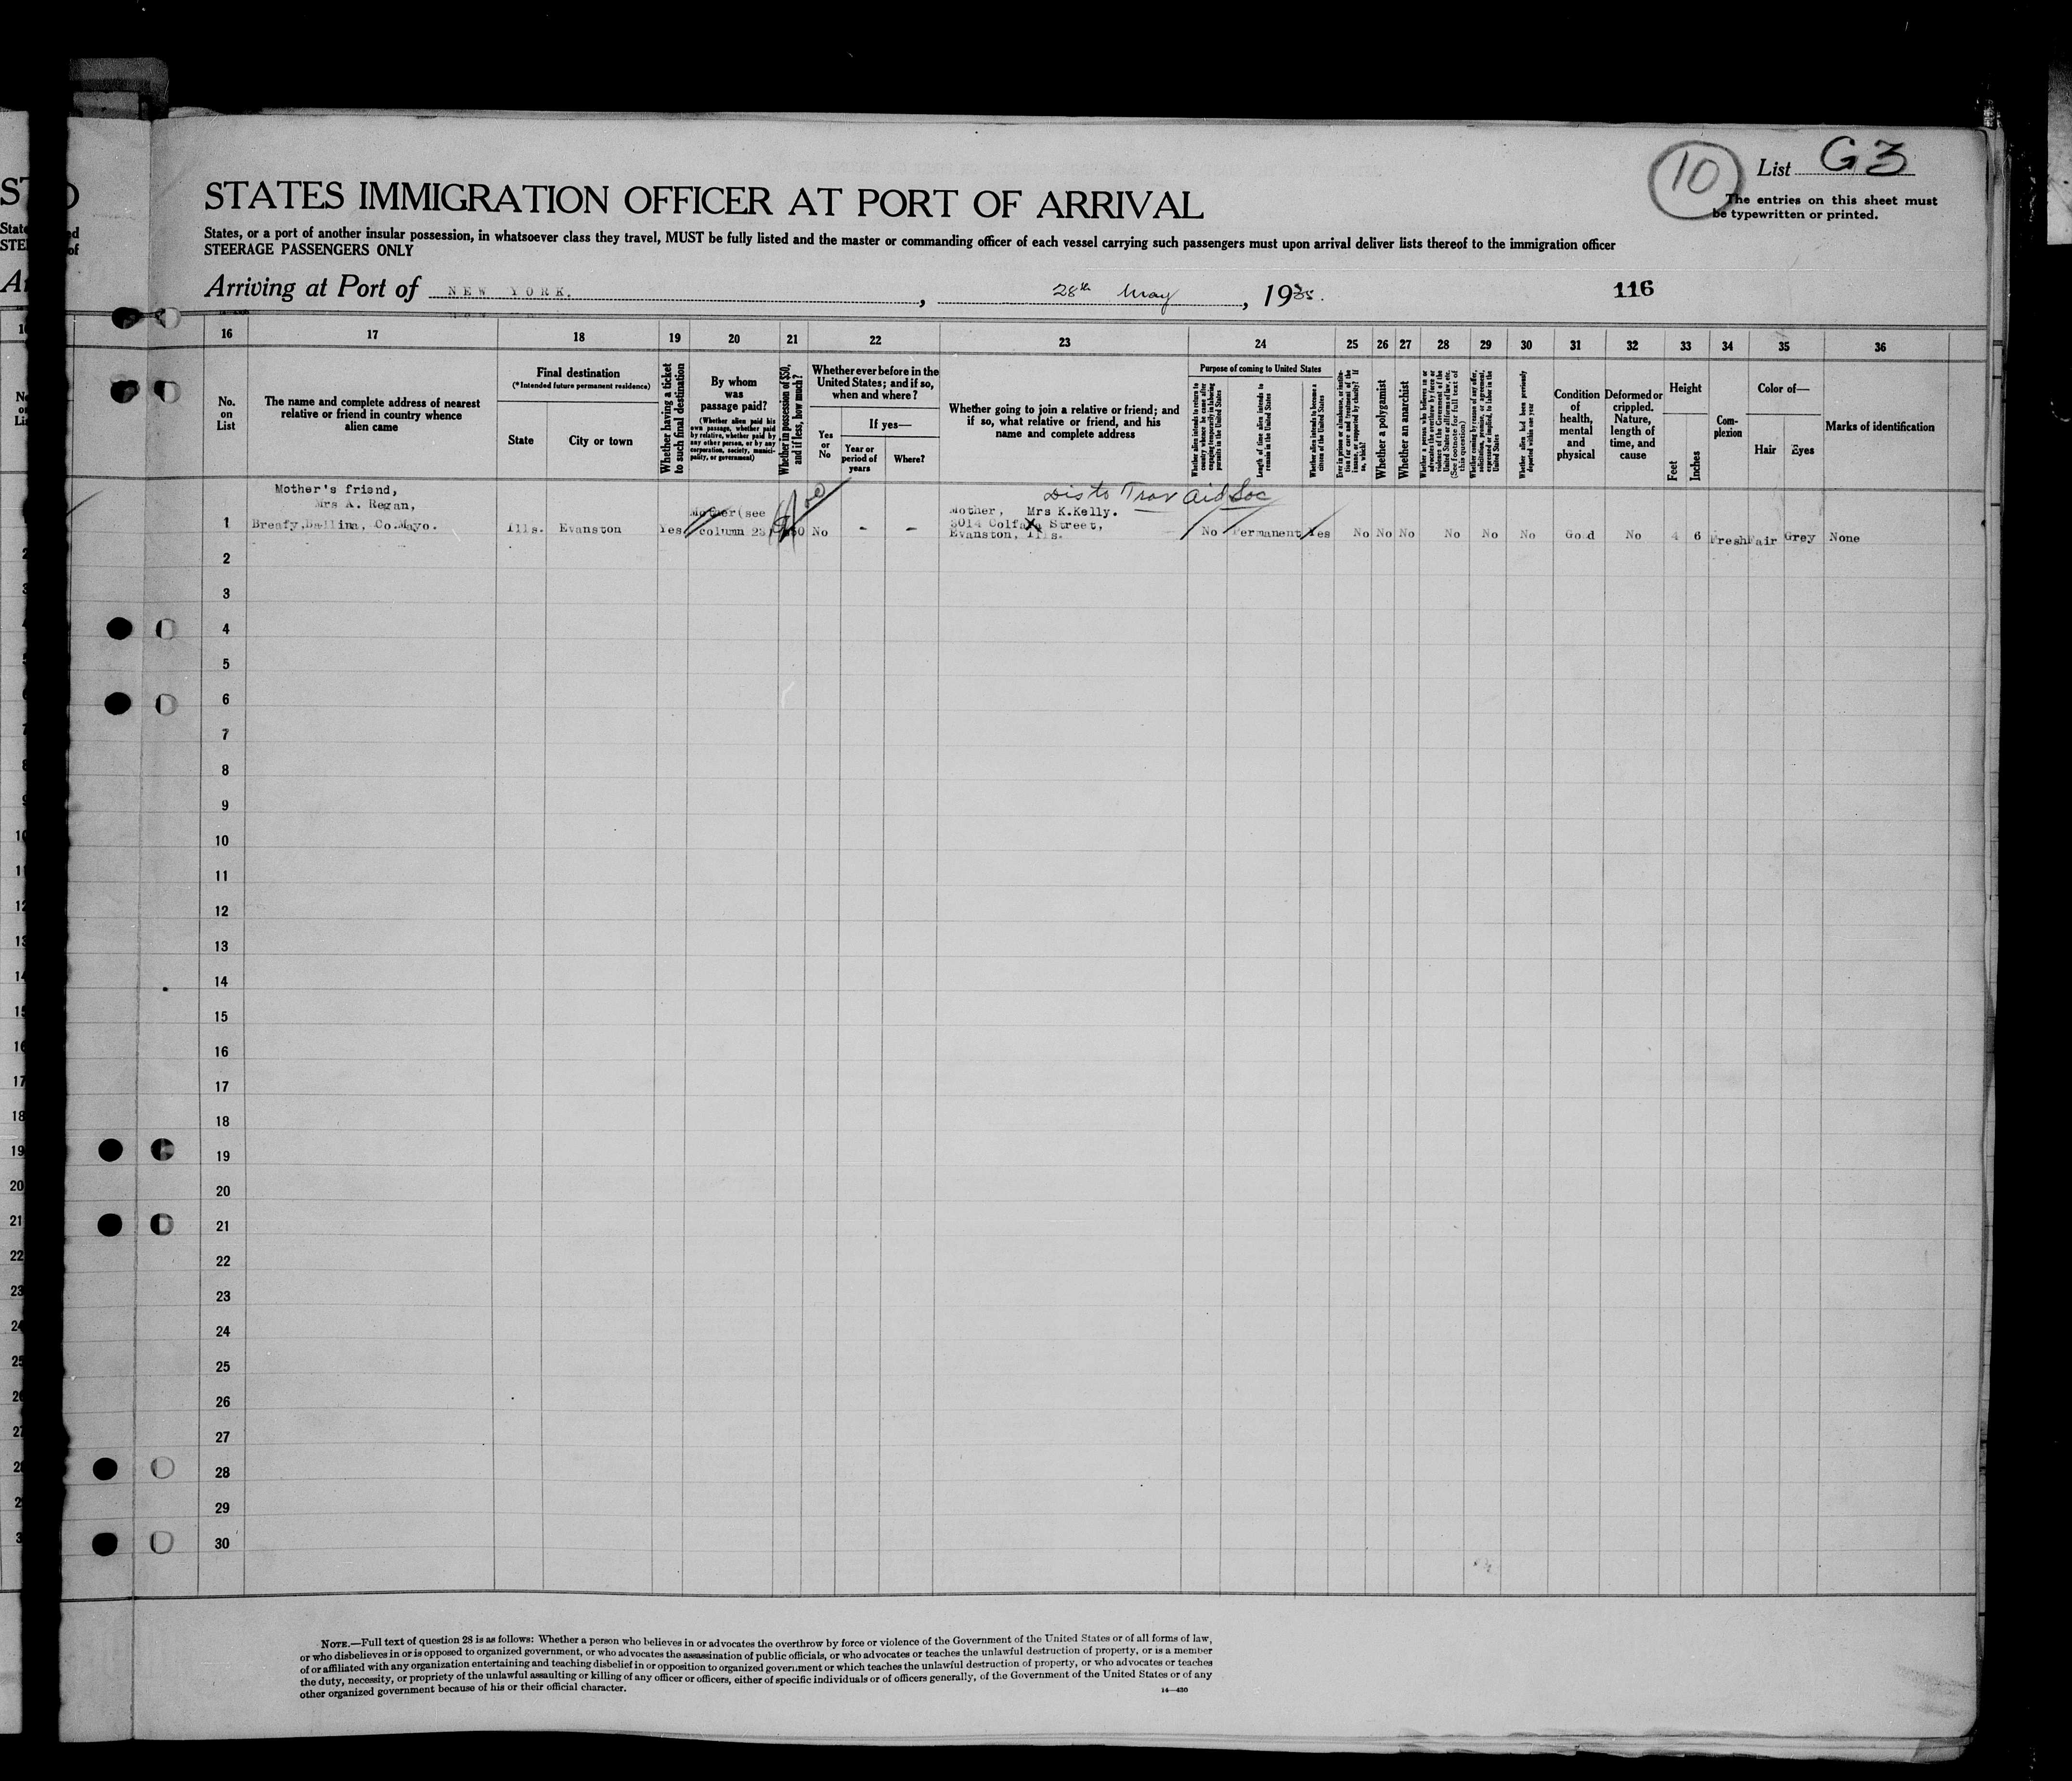 10
List G3
STATES IMMIGRATION OFFICER AT PORT OF ARRIVAL
The entries on this sheet must
be typewritten or printed.
States, or a port of another insular possession, in whatsoever class they travel, MUST be fully listed and the master or commanding officer of each vessel carrying such passengers must upon arrival deliver lists thereof to the immigration officer
STEERAGE PASSENGERS ONLY
Arriving at Port of NEW YORK. , 28th May , 1935.
116
16 17 18 19 20 21 22 23 24 25 26 27 28 29 30 31 32 33 34 35 36
No.
on
List
The name and complete address of nearest
relative or friend in country whence
alien came
Final destination
(*Intended future permanent residence)
State
City or town
Whether having a ticket
to such final destination
By whom
was
passage paid?
(Whether alien paid his
own passage, whether paid
by relative, whether paid by
any other person, or by any
corporation, society, munici-
pality, or government)
Whether in possession of $50,
and if less, how much?
Whether ever before in the
United States; and if so,
when and where?
Yes
or
No
If yes—
Year or
period of
years
Where?
Whether going to join a relative or friend; and
if so, what relative or friend, and his
name and complete address
Purpose of coming to United States
Whether alien intends to return to
country whence he came after
engaging temporarily in laboring
pursuits in the United States
Length of time alien intends to
remain in the United States
Whether alien intends to become a
citizen of the United States
Ever in prison or almshouse, or institu-
tion for care and treatment of the
insane, or supported by charity? If
so, which?
Whether a polygamist
Whether an anarchist
Whether a person who believes in or
advocates the overthrow by force or
violence of the Government of the
United States or all forms of law, etc.
(See footnote for full text of
this question)
Whether coming by reason of any offer,
solicitation, promise, or agreement,
expressed or implied, to labor in the
United States
Whether alien had been previously
deported within one year
Condition
of
health,
mental
and
physical
Deformed or
crippled.
Nature,
length of
time, and
cause
Height
Feet
Inches
Com-
plexion
Color of—
Hair
Eyes
Marks of identification
Dis to Trav Aid Soc
Mother's friend,
Mrs A. Regan,
Breafy, Ballina, Co.Mayo.
1
Ills. Evanston Yes
Mother (see
column 23)
No - -
Mother, Mrs K.Kelly.
3014 Colfax Street,
Evanston, Ills.
No Permanent Yes No No No No No No Good No 4 6 Fresh Fair Grey None
2
3
4
5
6
7
8
9
10
11
12
13
14
15
16
17
18
19
20
21
22
23
24
25
26
27
28
29
30
NOTE.—Full text of question 28 is as follows: Whether a person who believes in or advocates the overthrow by force or violence of the Government of the United States or of all forms of law,
or who disbelieves in or is opposed to organized government, or who advocates the assassination of public officials, or who advocates or teaches the unlawful destruction of property, or is a member
of or affiliated with any organization entertaining and teaching disbelief in or opposition to organized government or which teaches the unlawful destruction of property, or who advocates or teaches
the duty, necessity, or propriety of the unlawful assaulting or killing of any officer or officers, either of specific individuals or of officers generally, of the Government of the United States or of any
other organized government because of his or their official character.
14—430